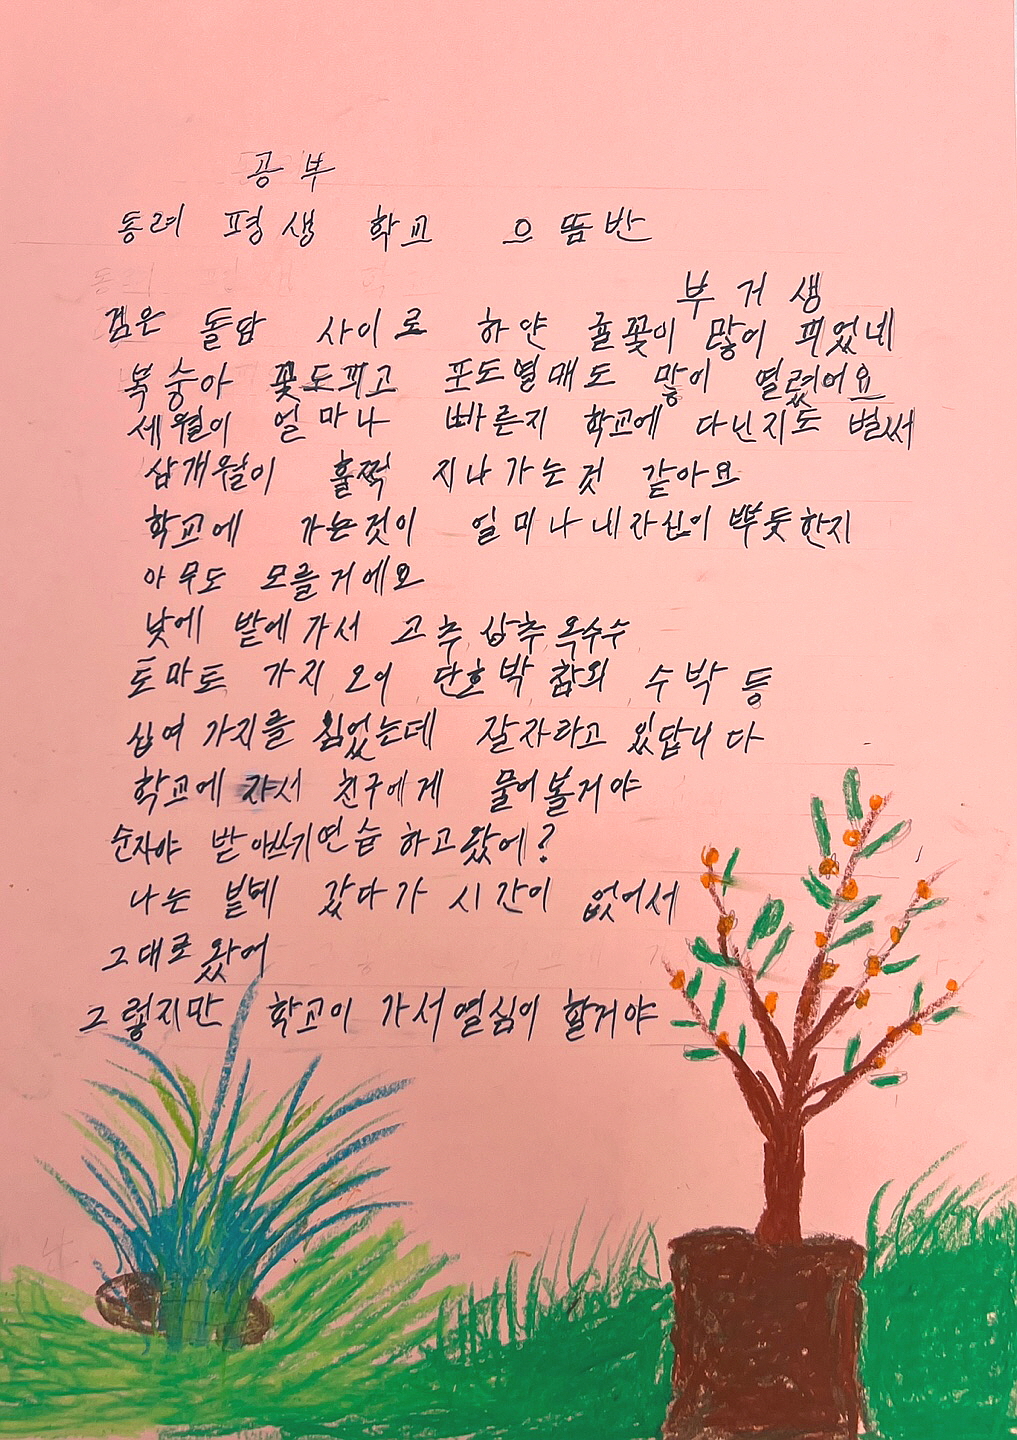 공부
동려 평생 학교 으뜸반
부거생
검은 돌담 사이로 하얀 귤꽃이 많이 피었네
복숭아 꽃도피고 포도열매도 많이 열렸어요
세월이 얼마나 빠른지 학교에 다닌지도 벌써
삼개월이 훌쩍 지나가는것 같아요
학교에 가는것이 얼마나 내자신이 뿌듯한지
아무도 모를거에요
낮에 밭에가서 고추, 상추, 옥수수
토마토, 가지, 오이, 단호박, 참외, 수박 등
십여 가지를 심었는데 잘자라고 있답니다
학교에 가서 친구에게 물어볼거야
순자야 받아쓰기연습 하고왔에?
나는 밭에 갔다가 시간이 없어서
그대로 왔어
그렇지만 학교이 가서열심이 할거야